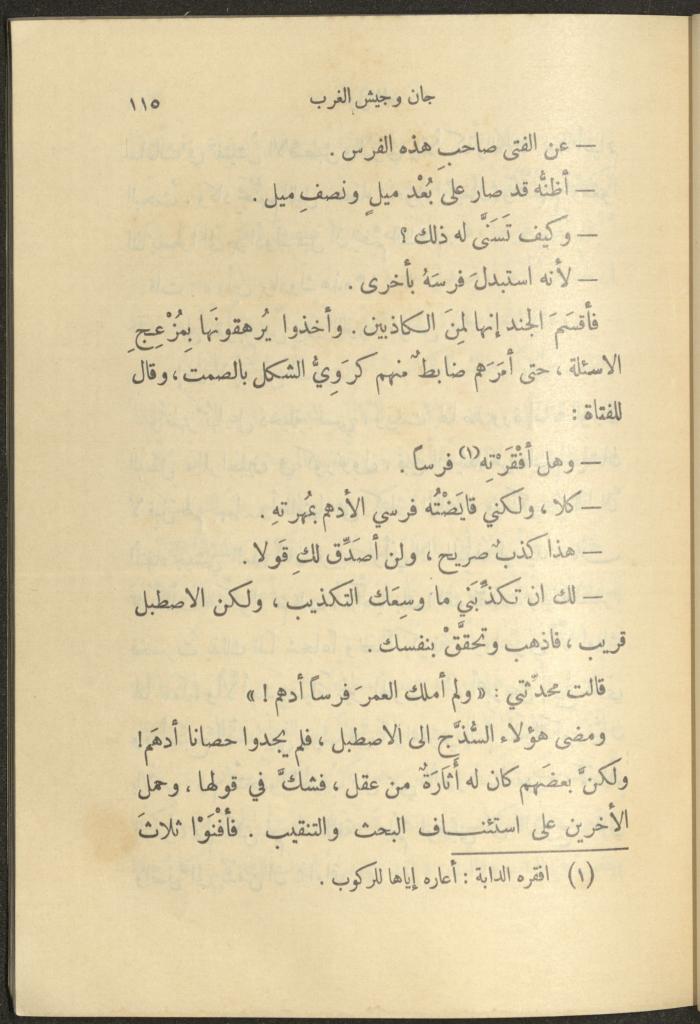 جان وجيش الغرب ١١٥
— عن الفتى صاحبِ هذه الفرس .
— أظنُّه قد صار على بُعْد ميلٍ ونصفِ ميل .
— وكيف تَسَنَّى له ذلك ؟
— لأنه استبدلَ فرسَهُ بأخرى .
فأقسَمَ الجند إنها لمنَ الكاذبين . وأخذوا يُرهقونَها بِمُزْعِجِ
الاسئلة ، حتى أمَرَهم ضابطٌ منهم كرَوِيُّ الشكل بالصمت ، وقال
للفتاة :
— وهل أفْقَرْتِهِ (١) فرساً .
— كلا ، ولكني قايَضْتُه فرسي الأدهم بمُهرتهِ .
— هذا كذبٌ صريح ، ولن أصَدِّق لكِ قَولا .
— لك ان تكذِّبَني ما وسِعَك التكذيب ، ولكن الاصطبل
قريب ، فاذهب وتحقَّقْ بنفسك .
قالت محدِّثتي : « ولم أملك العمرَ فرساً أدهم ! »
ومضى هؤلاء السُّذَّج الى الاصطبل ، فلم يجدوا حصانا أدهَم !
ولكنَّ بعضَهم كان له أثَارَةٌ من عقل ، فشكَّ في قولها ، وحمل
الأخرين على استئنـــاف البحث والتنقيب . فأفْنَوْا ثلاثَ
(١) افقره الدابة : أعاره إياها للركوب .